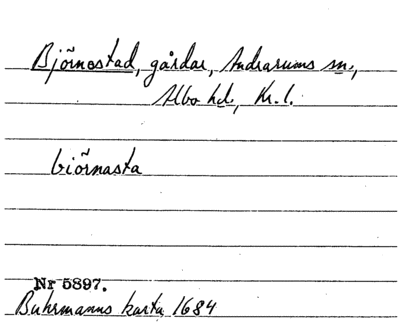 Björnestad, gårdar, Andrarums sn,
Albo hd., Kr. l.
biörnasta
Nr 5897.
Buhrmanns karta 1684